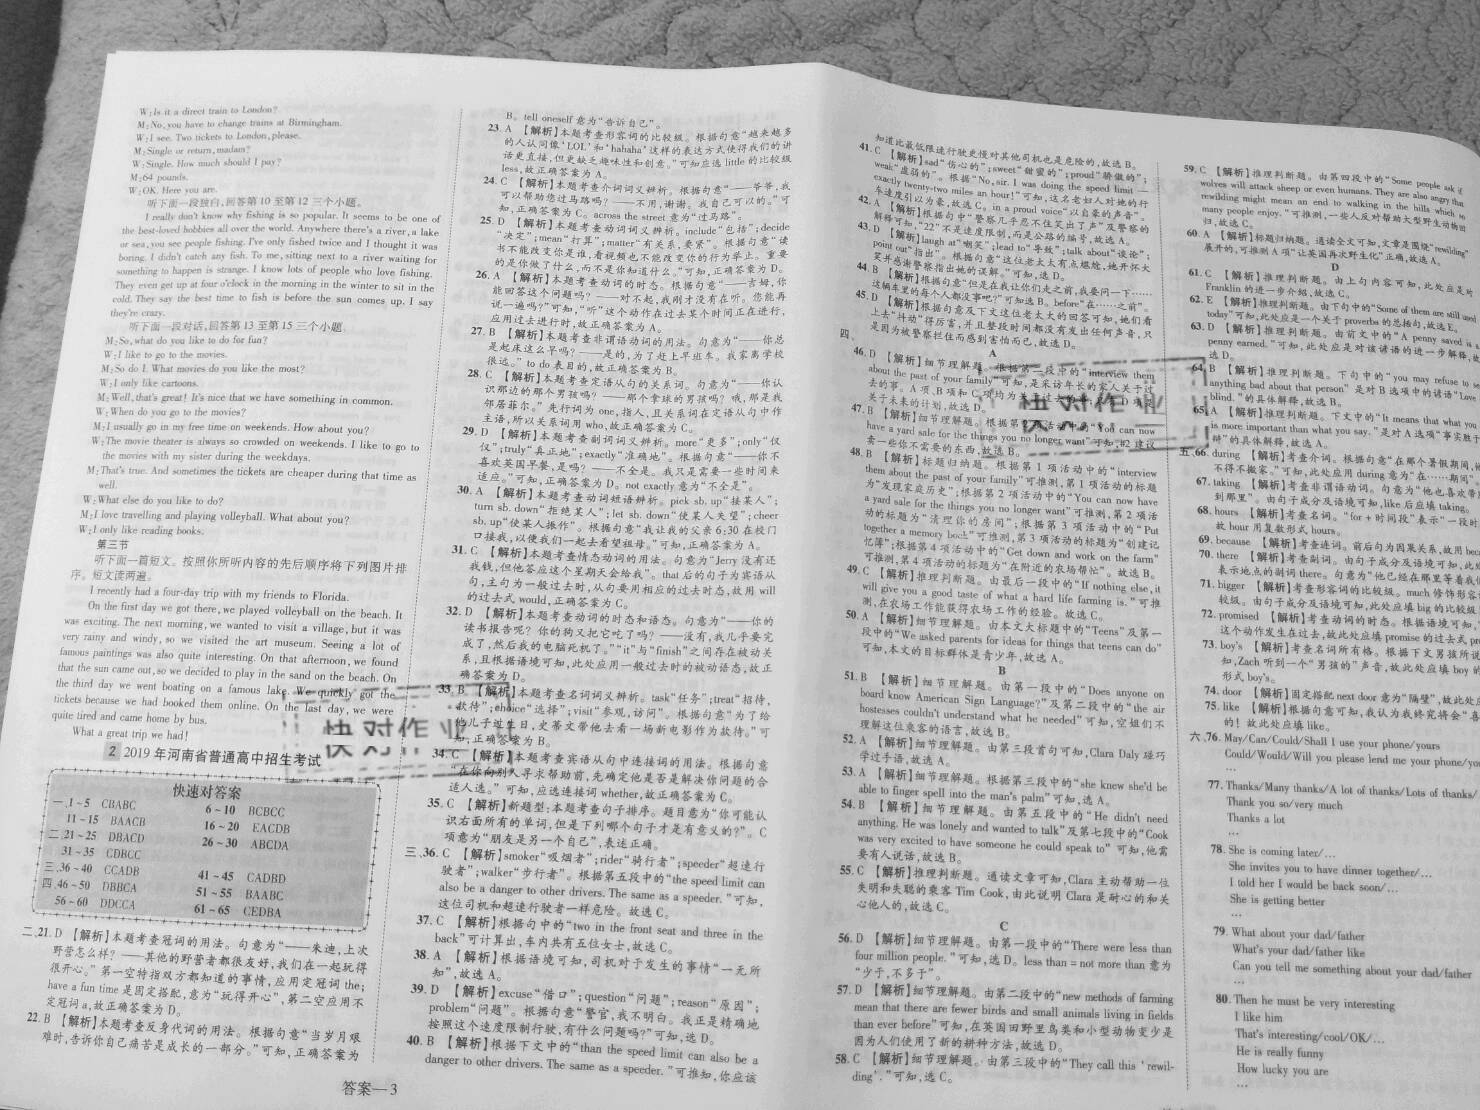 W:Is it a direct train to London?
M:No,you have to change trains at Birmingham.
W:I see. Two tickets to London,please.
M:Single or return,madam?
W:Single. How much should I pay?
M:64 pounds.
W:OK. Here you are.
听下面一段独白,回答第 10 至第 12 三个小题。
I really don't know why fishing is so popular. It seems to be one of
the best-loved hobbies all over the world. Anywhere there's a river,a lake
or sea,you see people fishing. I've only fished twice and I thought it was
boring. I didn't catch any fish. To me,sitting next to a river waiting for
something to happen is strange. I know lots of people who love fishing.
They even get up at four o'clock in the morning in the winter to sit in the
cold. They say the best time to fish is before the sun comes up. I say
they're crazy.
听下面一段对话,回答第 13 至第 15 三个小题。
M:So,what do you like to do for fun?
W:I like to go to the movies.
M:So do I. What movies do you like the most?
W:I only like cartoons.
M:Well,that's great! It's nice that we have something in common.
W:When do you go to the movies?
M:I usually go in my free time on weekends. How about you?
W:The movie theater is always so crowded on weekends. I like to go to
the movies with my sister during the weekdays.
M:That's true. And sometimes the tickets are cheaper during that time as
well.
W:What else do you like to do?
M:I love travelling and playing volleyball. What about you?
W:I only like reading books.
第三节
听下面一篇短文。按照你所听内容的先后顺序将下列图片排
序。短文读两遍。
I recently had a four-day trip with my friends to Florida.
On the first day we got there,we played volleyball on the beach. It
was exciting. The next morning,we wanted to visit a village,but it was
very rainy and windy, so we visited the art museum. Seeing a lot of
famous paintings was also quite interesting. On that afternoon,we found
that the sun came out,so we decided to play in the sand on the beach. On
the third day we went boating on a famous lake. We quickly got the
tickets because we had booked them online. On the last day,we were
quite tired and came home by bus.
What a great trip we had!
2 2019 年河南省普通高中招生考试
快速对答案
一、1~5 CBABC 6~10 BCBCC
11~15 BAACB 16~20 EACDB
二、21~25 DBACD 26~30 ABCDA
31~35 CDBCC
三、36~40 CCADB 41~45 CADBD
四、46~50 DBBCA 51~55 BAABC
56~60 DDCCA 61~65 CEDBA
二、21. D 【解析】本题考查冠词的用法。句意为“——朱迪,上次
野营怎么样？——其他的野营者都很友好,我们在一起玩得
很开心。”第一空特指双方都知道的事情,应用定冠词 the;
have a fun time 是固定搭配,意为“玩得开心”,第二空应用不
定冠词 a,故正确答案为 D。
22. B 【解析】本题考查反身代词的用法。根据句意“当岁月艰
难时,告诉你自己痛苦是成长的一部分。”可知,正确答案为
B。tell oneself 意为“告诉自己”。
23. A 【解析】本题考查形容词的比较级。根据句意“越来越多
的人认同像‘LOL’和‘hahaha’这样的表达方式使得我们的讲
话更直接,但更缺乏趣味性和创意。”可知应选 little 的比较级
less,故正确答案为 A。
24. C 【解析】本题考查介词词义辨析。根据句意“——爷爷,我
可以帮助您过马路吗？——不用,谢谢。我自己可以的。”可
知,正确答案为 C。across the street 意为“过马路”。
25. D 【解析】本题考查动词词义辨析。include“包括”;decide
“决定”;mean“打算”;matter“有关系,要紧”。根据句意“读
书不能改变你是谁,看视频也不能改变你的行为举止。重要
的是你做了什么,而不是你知道什么。”可知,正确答案为 D。
26. A 【解析】本题考查动词的时态。根据句意“——吉姆,你
能回答这个问题吗？——对不起,我刚才没有在听。您能再
说一遍吗?”可知,“听”这个动作在过去某个时间正在进行,
应用过去进行时,故正确答案为 A。
27. B 【解析】本题考查非谓语动词的用法。句意为“——你总
是起床这么早吗？——是的,为了赶上早班车。我家离学校
很远。”to do 表目的,故正确答案为 B。
28. C 【解析】本题考查定语从句的关系词。句意为“——你认
识那边的那个男孩吗？——那个拿球的男孩吗？哦,那是我
邻居菲尔。”先行词为 one,指人,且关系词在定语从句中作
主语,所以关系词用 who,故正确答案为 C。
29. D 【解析】本题考查副词词义辨析。more“更多”;only“仅
仅”;truly“真正地”;exactly“准确地”。根据句意“——你不
喜欢英国早餐,是吗？——不全是。我只是需要一些时间来
适应。”可知,正确答案为 D。not exactly 意为“不全是”。
30. A 【解析】本题考查动词短语辨析。pick sb. up“接某人”;
turn sb. down“拒绝某人”;let sb. down“使某人失望”;cheer
sb. up“使某人振作”。根据句意“我让我的父亲 6:30 在校门
口接我,以便我们一起去看望祖母。”可知,正确答案为 A。
31. C 【解析】本题考查情态动词的用法。句意为“Jerry 没有还
我钱,但他答应这个星期天会给我”。that 后的句子为宾语从
句,主句为一般过去时,从句要用相应的过去时态,故用 will
的过去式 would,正确答案为 C。
32. D 【解析】本题考查动词的时态和语态。句意为“——你的
读书报告呢？你的狗又把它吃了吗？——没有,我几乎要完
成了,然后我的电脑死机了。”“it”与“finish”之间存在被动关
系,且根据语境可知,此处应用一般过去时的被动语态,故正
确答案为 D。
33. B 【解析】本题考查名词词义辨析。task“任务”;treat“招待,
款待”;choice“选择”;visit“参观,访问”。根据句意“为了给
他儿子过生日,史蒂文带他去看一场新电影作为款待。”可
知,正确答案为 B。
34. C 【解析】本题考查宾语从句中连接词的用法。根据句意
“在你向别人寻求帮助前,先确定他是否是解决你问题的合
适人选。”可知,应选连接词 whether,故正确答案为 C。
35. C 【解析】新题型:本题考查句子排序。题目意为“你可能认
识右面所有的单词,但是下列哪个句子才是有意义的?”。C
项意为“朋友是另一个自己”,表述正确。
三、36. C 【解析】smoker“吸烟者”;rider“骑行者”;speeder“超速行
驶者”;walker“步行者”。根据第五段中的“the speed limit can
also be a danger to other drivers. The same as a speeder.”可知,
这位司机和超速行驶者一样危险。故选 C。
37. C 【解析】根据句中的“two in the front seat and three in the
back”可计算出,车内共有五位女士,故选 C。
38. A 【解析】根据语境可知,司机对于发生的事情“一无所
知”,故选 A。
39. D 【解析】excuse“借口”;question“问题”;reason“原因”;
problem“问题”。根据句意“警官,我不明白。我正是精确地
按照这个速度限制行驶,有什么问题吗?”可知,选 D。
40. B 【解析】根据下文中的“than the speed limit can also be a
danger to other drivers. The same as a speeder.”可推知,你应该
答案—3
知道比最低限速行驶更慢对其他司机也是危险的,故选 B。
41. C 【解析】sad“伤心的”;sweet“甜蜜的”;proud“骄傲的”;
weak“虚弱的”。根据“No,sir. I was doing the speed limit —
exactly twenty-two miles an hour!”可知,这名老妇人对她的行
车速度引以为豪,故选 C。in a proud voice“以自豪的声音”。
42. A 【解析】根据句中“警察几乎忍不住笑出了声”及警察的
解释可知,“22”不是速度限制,而是公路的编号,故选 A。
43. D 【解析】laugh at“嘲笑”;lead to“导致”;talk about“谈论”;
point out“指出”。根据句意“这位老太太有点尴尬,她开怀大
笑并感谢警察指出她的误解。”可知,选 D。
44. B 【解析】根据句意“但是在我让你们走之前,我要问一下……
这辆车里的每个人都没事吧?”可知选 B。before“在……之前”。
45. D 【解析】根据句意及下文这位老太太的回答可知,她们看
上去“抖动”得厉害,并且整段时间都没有发出任何声音,只
是因为被警察拦住而感到害怕而已,故选 D。
四、
A
46. D 【解析】细节理解题。根据第二段中的“interview them
about the past of your family”可知,是采访年长的家人关于过
去的事。A 项、B 项和 C 项均为关于过去的事,只有 D 项是
关于未来的计划,故选 D。
47. B 【解析】细节理解题。根据第 2 项活动中的“You can now
have a yard sale for the things you no longer want”可知,#2 建议
卖一些你不需要的东西,故选 B。
48. B 【解析】标题归纳题。根据第 1 项活动中的“interview
them about the past of your family”可推测,第 1 项活动的标题
为“发现家庭历史”;根据第 2 项活动中的“You can now have
a yard sale for the things you no longer want”可推测,第 2 项活
动的标题为“清理你的房间”;根据第 3 项活动中的“Put
together a memory box”可推测,第 3 项活动的标题为“创建记
忆簿”;根据第 4 项活动中的“Get down and work on the farm”
可推测,第 4 项活动的标题为“在附近的农场帮忙”。故选 B。
49. C 【解析】推理判断题。由最后一段中的“If nothing else,it
will give you a good taste of what a hard life farming is.”可推
测,在农场工作能获得农场工作的经验。故选 C。
50. A 【解析】细节理解题。由本文大标题中的“Teens”及第一
段中的“We asked parents for ideas for things that teens can do”
可知,本文的目标群体是青少年,故选 A。
B
51. B 【解析】细节理解题。由第一段中的“Does anyone on
board know American Sign Language?”及第二段中的“the air
hostesses couldn't understand what he needed”可知,空姐们不
理解这位乘客的语言,故选 B。
52. A 【解析】细节理解题。由第三段首句可知,Clara Daly 碰巧
学过手语,故选 A。
53. A 【解析】细节理解题。根据第三段中的“she knew she'd be
able to finger spell into the man's palm”可知,选 A。
54. B 【解析】细节理解题。由第五段中的“He didn't need
anything. He was lonely and wanted to talk”及第七段中的“Cook
was very excited to have someone he could speak to”可知,他需
要有人说话,故选 B。
55. C 【解析】推理判断题。通读文章可知,Clara 主动帮助一位
失明和失聪的乘客 Tim Cook,由此说明 Clara 是耐心的和关
心他人的,故选 C。
C
56. D 【解析】细节理解题。由第一段中的“There were less than
four million people.”可知,选 D。less than = not more than 意为
“少于,不多于”。
57. D 【解析】细节理解题。由第二段中的“new methods of farming
mean that there are fewer birds and small animals living in fields
than ever before”可知,在英国田野里鸟类和小型动物变少是
因为人们使用了新的耕种方法,故选 D。
58. C 【解析】细节理解题。由第三段中的“They call this ‘rewil-
ding’.”可知,选 C。
59. C 【解析】推理判断题。由第四段中的“Some people ask if
wolves will attack sheep or even humans. They are also angry that
rewilding might mean an end to walking in the hills which so
many people enjoy.”可推测,一些人反对帮助大型野生动物回
归,故选 C。
60. A 【解析】标题归纳题。通读全文可知,文章是围绕“rewilding”
展开的,可推测 A 项“让英国再次野生化”正确,故选 A。
D
61. C 【解析】推理判断题。由上句内容可知,此处应是对
Franklin 的进一步介绍,故选 C。
62. E 【解析】推理判断题。由下句中的“Some of them are still used
today”可知,此处应是一个关于 proverbs 的总括句,故选 E。
63. D 【解析】推理判断题。由前文中的“A penny saved is a
penny earned.”可知,此处应是对该谚语的进一步解释,故
选 D。
64. B 【解析】推理判断题。下句中的“you may refuse to se
anything bad about that person”是对 B 选项中的谚语“Love
blind.”的具体解释,故选 B。
65. A 【解析】推理判断题。下文中的“It means that what you
is more important than what you say.”是对 A 选项“事实胜于
辩”的具体解释,故选 A。
五、66. during 【解析】考查介词。根据句意“在那个暑假期间,他
不得不搬家。”可知,此处应用 during 意为“在……期间”。
67. taking 【解析】考查非谓语动词。句意为“他也喜欢带
到那里”。由句子成分及语境可知,like 后应填 taking。
68. hours 【解析】考查名词。“for + 时间段”表示“一段时
故 hour 用复数形式 hours。
69. because 【解析】考查连词。前后句为因果关系,故用 bec
70. there 【解析】考查副词。由句子成分及语境可知,此处
表示地点的副词 there。句意为“他已经在那里等着我们
71. bigger 【解析】考查形容词的比较级。much 修饰形容
较级。由句子成分及语境可知,此处应填 big 的比较级
72. promised 【解析】考查动词的时态。根据语境可知,
这个动作发生在过去,故此处应填 promise 的过去式 pro
73. boy's 【解析】考查名词所有格。根据下文男孩所说
知,Zach 听到一个“男孩的”声音,故此处应填 boy 的
形式 boy's。
74. door 【解析】固定搭配 next door 意为“隔壁”,故此处应
75. like 【解析】根据句意可知,我认为我终究将会“喜
的！故此处应填 like。
六、76. May/Can/Could/Shall I use your phone/yours
Could/Would/Will you please lend me your phone/you
…
77. Thanks/Many thanks/A lot of thanks/Lots of thanks/
Thank you so/very much
Thanks a lot
…
78. She is coming later/…
She invites you to have dinner together/…
I told her I would be back soon/…
She is getting better
…
79. What about your dad/father
What's your dad/father like
Can you tell me something about your dad/father
…
80. Then he must be very interesting
I like him
That's interesting/cool/OK/…
He is really funny
How lucky you are
…
快对作业
快对作业